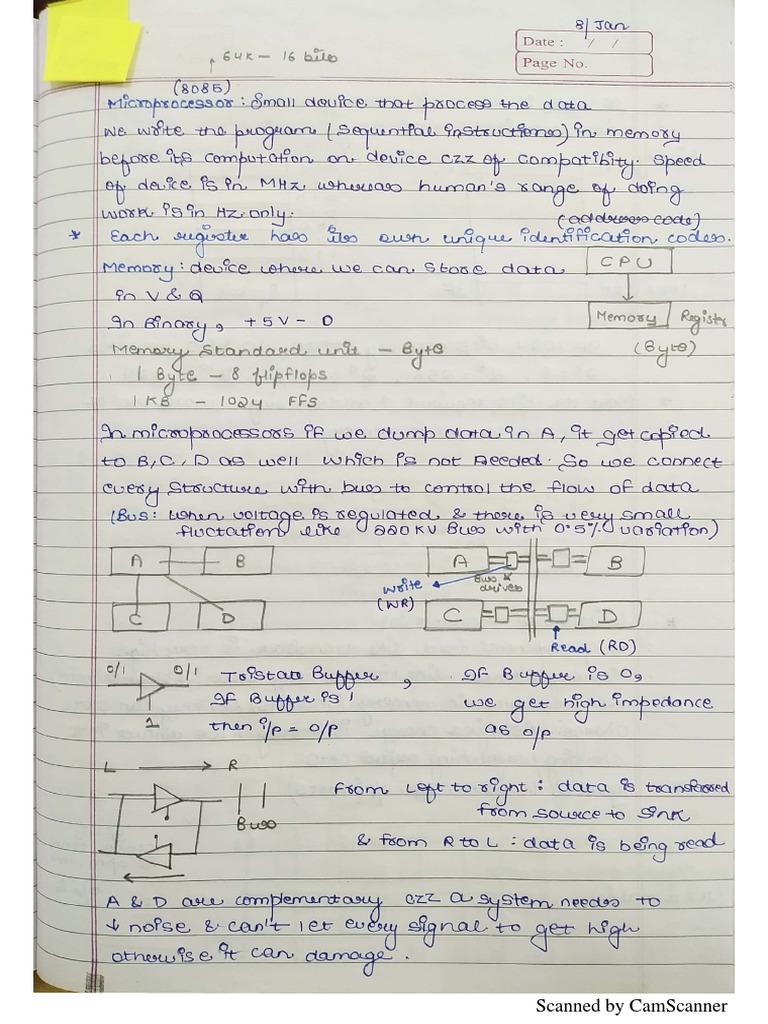 8/Jan
Date : / /
Page No.
64K – 16 bits
(8085)
Microprocessor : Small device that process the data
we write the program (sequential instructions) in memory
before its computation on device czz of compatibity. Speed
of device is in MHz whereas human's range of doing
work is in Hz only.
(address code)
* Each register has its own unique identification codes.
Memory : device where we can store data
CPU
in V & Q
Memory
Register
In Binary, +5V – 0
(Byte)
Memory Standard unit – Byte
1 Byte – 8 flipflops
1 KB – 1024 FFS
In microprocessors if we dump data in A, it get copied
to B, C, D as well which is not needed. So we connect
every structure with bus to control the flow of data
(Bus : when voltage is regulated & there is very small
fluctation like 220 KV Bus with 0.5% variation)
A B
C D
A B
Write
(WR)
Bus &
drives
C D
Read (RD)
0/1 0/1
1
Tristate Buffer , If Buffer is 0,
If Buffer is 1 we get high impedance
then i/p = o/p as o/p
L → R
Bus
From Left to right : data is transferred
from source to sink
& from R to L : data is being read
A & D are complementary czz a system needs to
↓ noise & can't let every signal to get high
otherwise it can damage.
Scanned by CamScanner